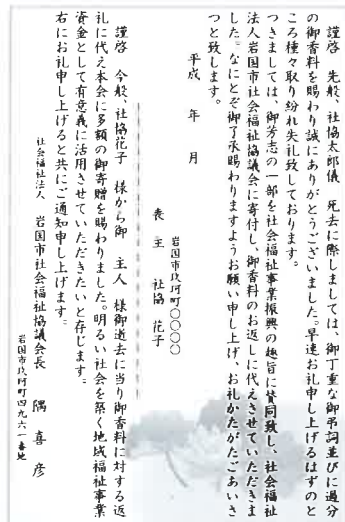 謹啓　先般、社協太郎儀　死去に際しましては、御丁重な御弔詞並びに過分
の御香料を賜わり誠にありがとうございました。早速お礼申し上げるはずのと
ころ種々取り紛れ失礼致しております。
つきましては、御芳志の一部を社会福祉事業振興の趣旨に賛同致し、社会福祉
法人岩国市社会福祉協議会に寄付し、御香料のお返しに代えさせていただきま
した。なにとぞ御了承賜わりますようお願い申し上げ、お礼かたがたごあいさ
つと致します。
平成　年　月
岩国市玖珂町〇〇〇〇
喪主　社協　花子
謹啓　今般、社協花子　様から御　主人　様御逝去に当り御香料に対する返
礼に代え本会に多額の御寄贈を賜わりました。明るい社会を築く地域福祉事業
資金として有意義に活用させていただきたいと存じます。
右にお礼申し上げると共にご通知申し上げます。
社会福祉法人　岩国市社会福祉協議会長　隅　喜彦
岩国市玖珂町四九六一番地